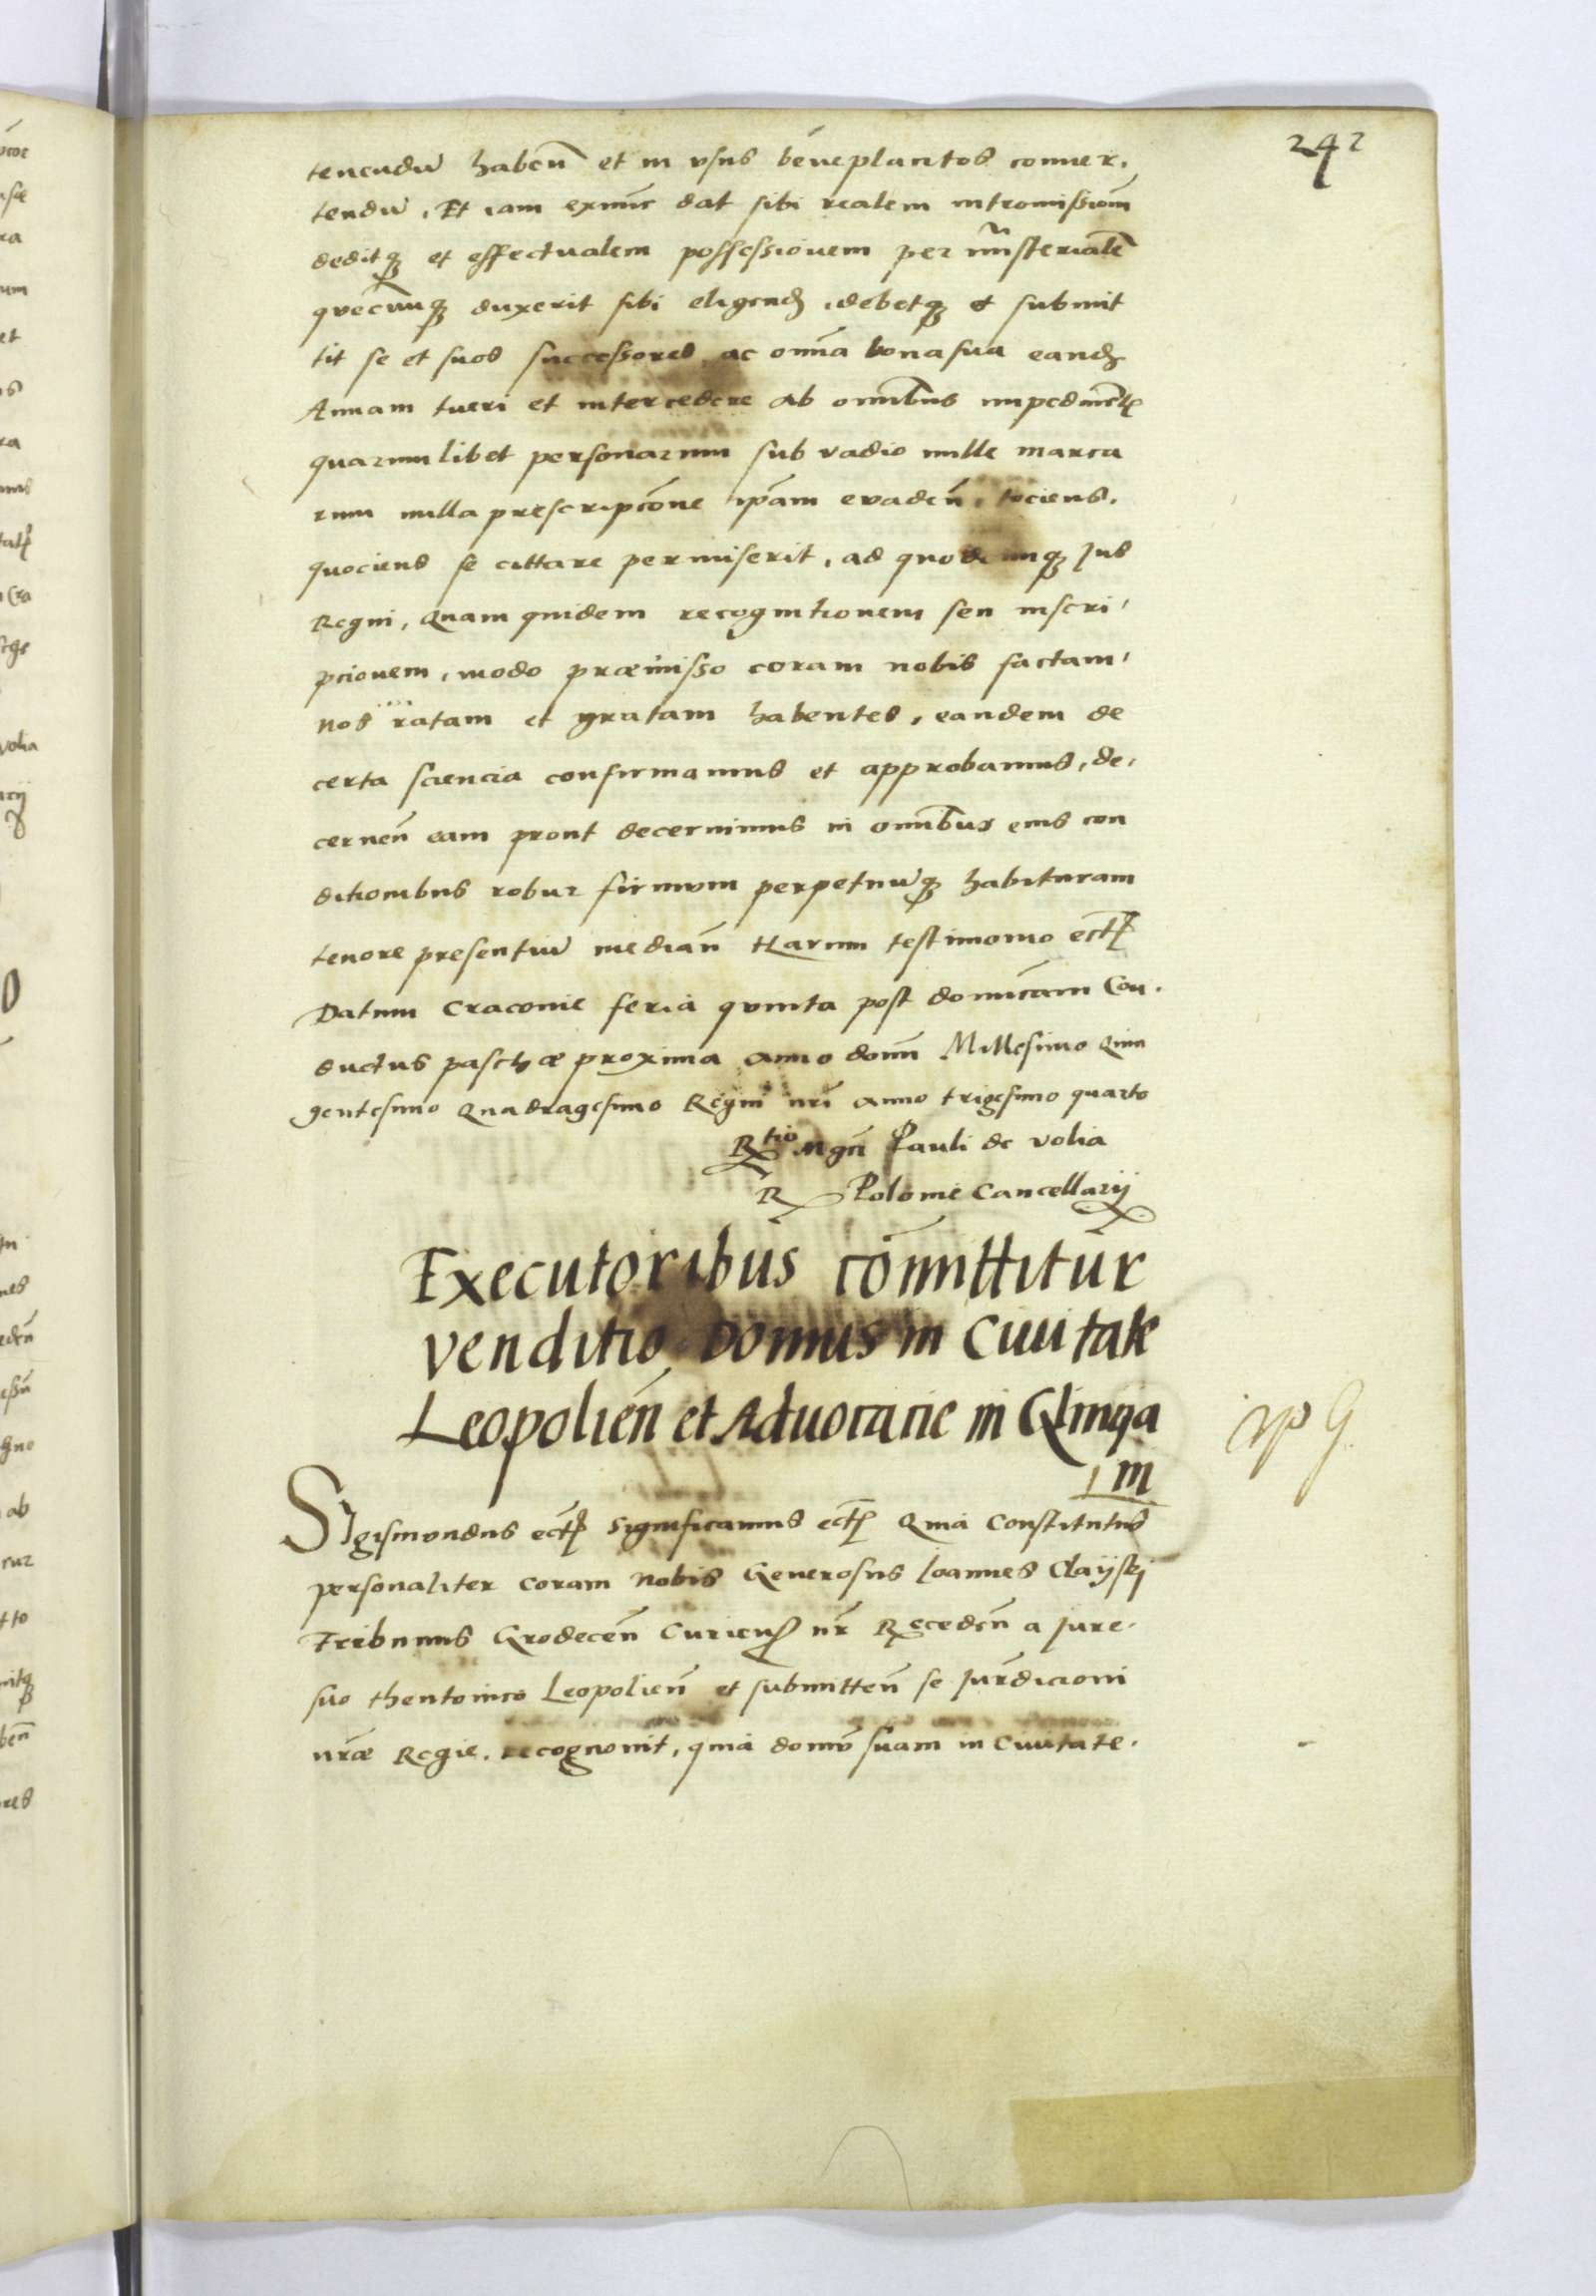 242
tenendu̅ haben̅ et in vsus beneplacitos conuer,
tendu̅, Et iam exnu̅c dat sibi realem intromissiom̅
deditq꜒ et effectualem possessionem per mi̅nisteriale̅
que̅cunq꜒ duxerit sibi eligend, debetq꜒ et submit
tit se et suos successores ac omia̅ bona sua eand
Annam tueri et intercedere ab omibus̅ impedimet̅
quarumlibet personarum sub vadio mille marca
rum nulla prescripco̅ne ipa̅m evaden̅, tociens,
quociens se cittare permiserit, ad quodcunq꜒ Jus
Regni, Quam quidem recognitionem seu inscri,
pcionem, modo præmisso coram nobis factam,
nos ratam et gratam habentes, eandem de
certa sciencia confirmamus et approbamus, de,
cernen̅ eam prout decernimus in omibus̅ eius con
ditionibus robur firmum perpetuu̅q꜒ habituram
tenore presentiu̅ median̅ tt̅arum testimonio ect̅
Datum Cracouie feria quinta post domica̅m Con,
ductus paschæ proxima anno domi̅ Millesimo Quin
gentesimo Quadragesimo Regni nri̅ anno trigesimo quarto
Rtio Mgci̅ Pauli de Volia
R Polonie Cancellarij
Executoribus co̅mittitur
venditio Domus in Ciuitate
Leopolien̅ et Aduocacie in Glinya
m
Sigismundus ect̅ significamus ect̅ Quia Constitutus
personaliter coram nobis Generosus Joannes
Tribunus Grodecen̅ Curien nr̅ Receden̅ a Jure,
suo thentonico Leopolien̅ et submitten̅ se Jur̅dicioni
nræ̅ Regie, recognouit, quia domu̅ suam in Ciuitate,